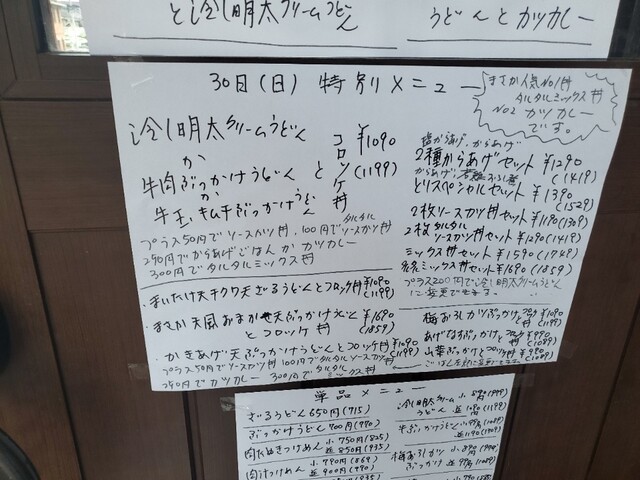 と冷し明太クリームうどん
うどんとカツカレー
30日(日) 特別メニュー
まさか人気No1丼
タルタルミックス丼
No2 カツカレー
です。
冷し明太クリームうどん
か
牛肉ぶっかけうどん と
か
牛玉キムチぶっかけうどん
コロッケ丼
¥1090
(1199)
プラス50円でソースカツ丼、100円でタルタルソースカツ丼
250円でからあげごはんかカツカレー
300円でタルタルミックス丼
塩からあげ、からあげ
2種からあげセット ¥1290
(1419)
とりスペシャルセット ¥1390
(1529)
2枚ソースカツ丼セット ¥1190(1309)
2枚タルタルソースカツ丼セット ¥1290(1419)
ミックス丼セット ¥1590(1749)
ミックス丼セット ¥1690(1859)
プラス200円で冷し明太クリームうどん
に変更できます。
・まいたけ天チクワ天ざるうどんとコロッケ丼 ¥1090
(1199)
・まさか天風おまかせ天ぶっかけうどん
とコロッケ丼
¥1690
(1859)
・かきあげ天ぶっかけうどんとコロッケ丼 ¥1090
(1199)
プラス50円でソースカツ丼 100円でタルタルソースカツ丼
250円でカツカレー 300円でタルタルミックス丼
梅おろしカツぶっかけとコロッケ丼 ¥1090
(1199)
あげなすぶっかけとコロッケ丼 ¥990
(1089)
山菜ぶっかけとコロッケ丼 ¥990
(1089)
単品メニュー
ざるうどん 650円(715)
ぶっかけうどん 700円(770)
肉たぬきつけめん 小 750円(825)
並 850円(935)
肉汁つけめん 小 790円(869)
並 900円(990)
(935)
冷し明太クリームうどん
牛ぶっかけうどん
並1190(1309)
梅おろしカツぶっかけ